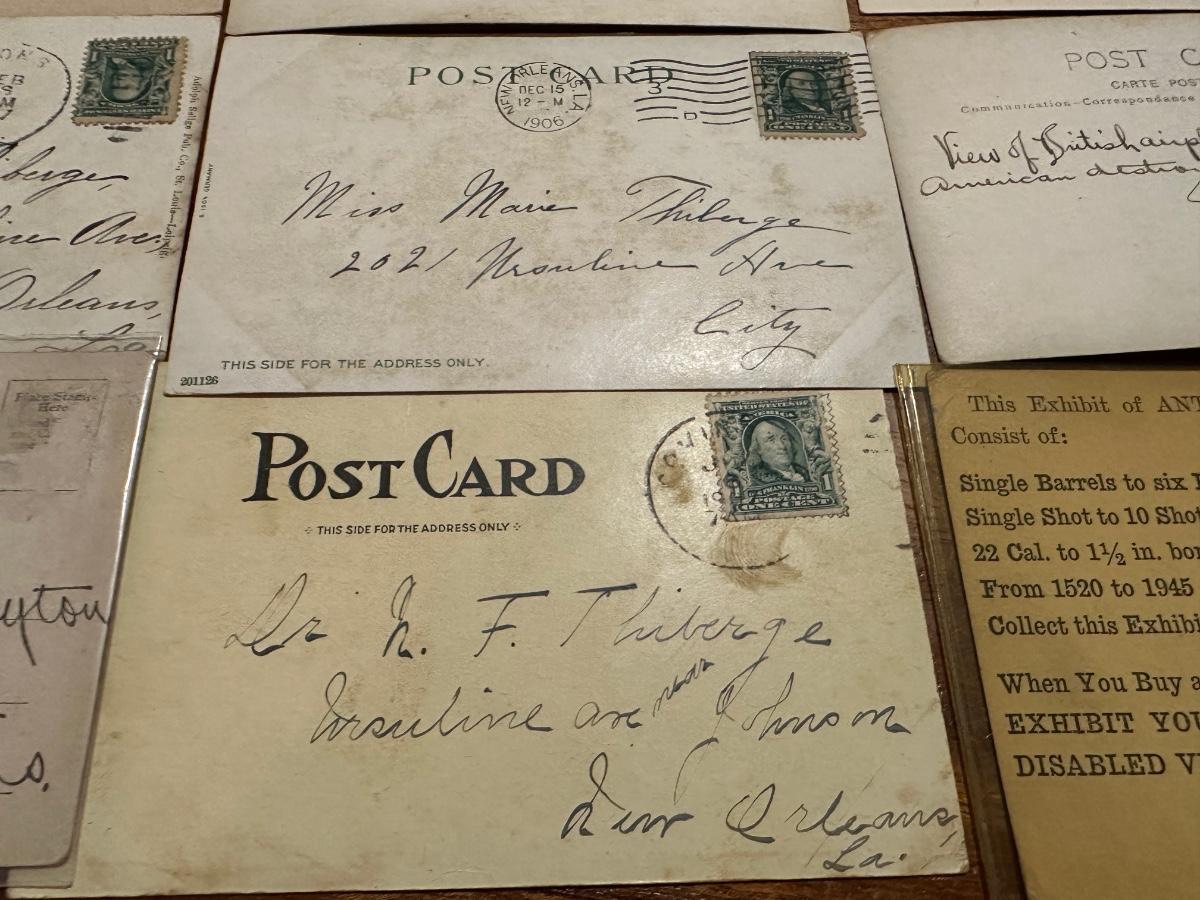 EB
1
Adolph Selige Pub. Co., St. Louis—Leipzig
berge,
Ave.
Orleans,
La
POST CARD
NEW ORLEANS, LA.
DEC 15
12 - M
1906
3
D
FRANKLIN
ONE CENT
GERMANY
Miss Marie Thiberge
2021 Ursuline Ave
City
THIS SIDE FOR THE ADDRESS ONLY.
201126
POST C
CARTE POS
Communication—Correspondence
View of British airp
American destro
Place Stamp
Here
yton
s.
POST CARD
THIS SIDE FOR THE ADDRESS ONLY
UNITED STATES OF
AMERICA
FRANKLIN
1 POSTAGE 1
ONE CENT
Dr N. F. Thiberge
Ursuline ave near Johnson
New Orleans,
La.
This Exhibit of ANT
Consist of:
Single Barrels to six
Single Shot to 10 Shot
22 Cal. to 1½ in. bor
From 1520 to 1945
Collect this Exhibi
When You Buy a
EXHIBIT YOU
DISABLED V